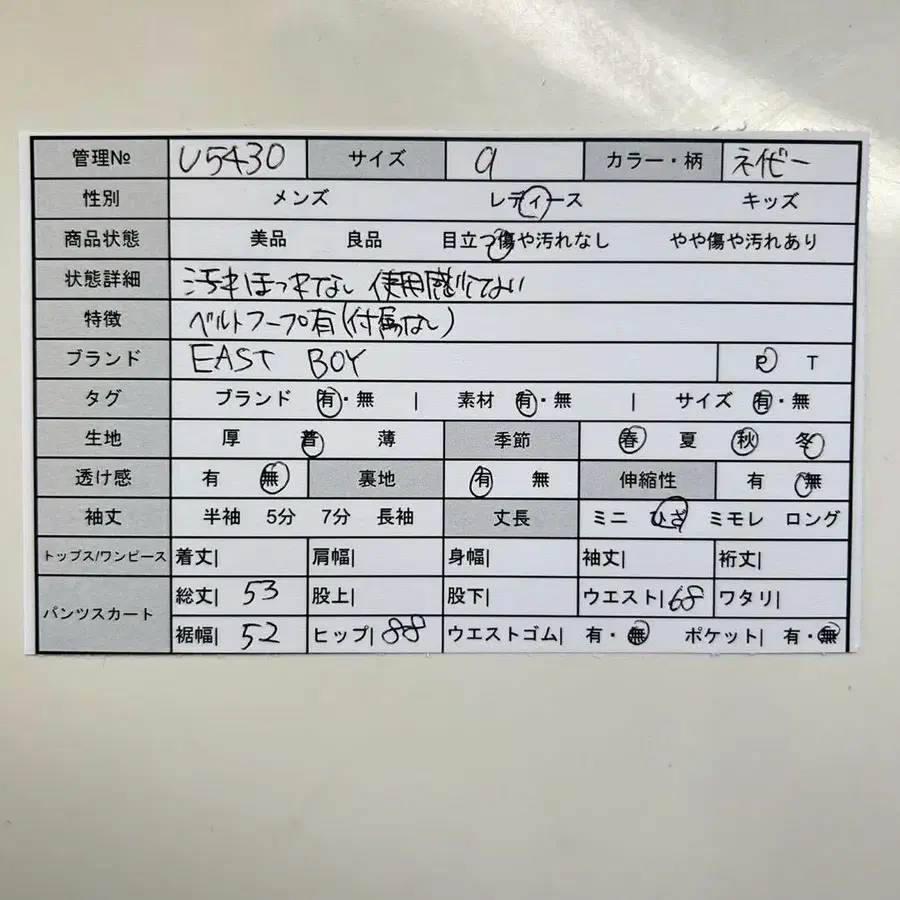 管理№ U5430 サイズ 9 カラー・柄 ネイビー
性別 メンズ レディース キッズ
商品状態 美品 良品 目立つ傷や汚れなし やや傷や汚れあり
状態詳細 汚れほつれなし 使用感少てない
特徴 ベルトループ有(付属なし)
ブランド EAST BOY P T
タグ ブランド 有・無 | 素材 有・無 | サイズ 有・無
生地 厚 普 薄 季節 春 夏 秋 冬
透け感 有 無 裏地 有 無 伸縮性 有 無
袖丈 半袖 5分 7分 長袖 丈長 ミニ ひざ ミモレ ロング
トップス/ワンピース 着丈| 肩幅| 身幅| 袖丈| 裄丈|
パンツスカート 総丈| 53 股上| 股下| ウエスト| 68 ワタリ|
裾幅| 52 ヒップ| 88 ウエストゴム| 有・無 ポケット| 有・無